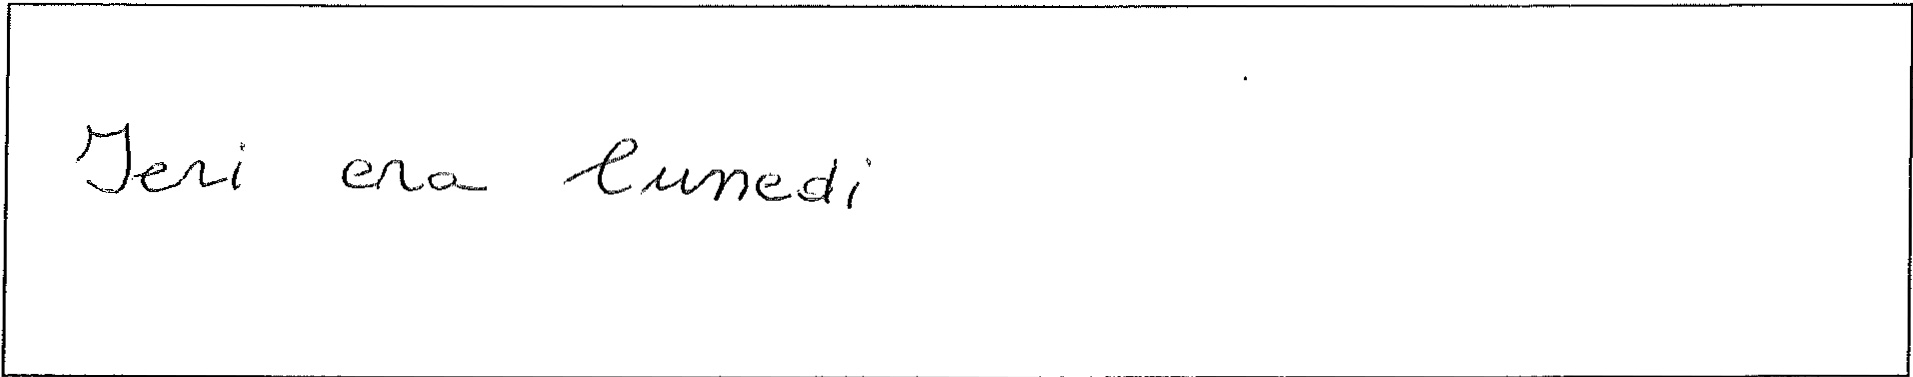 Ieri era lunedi